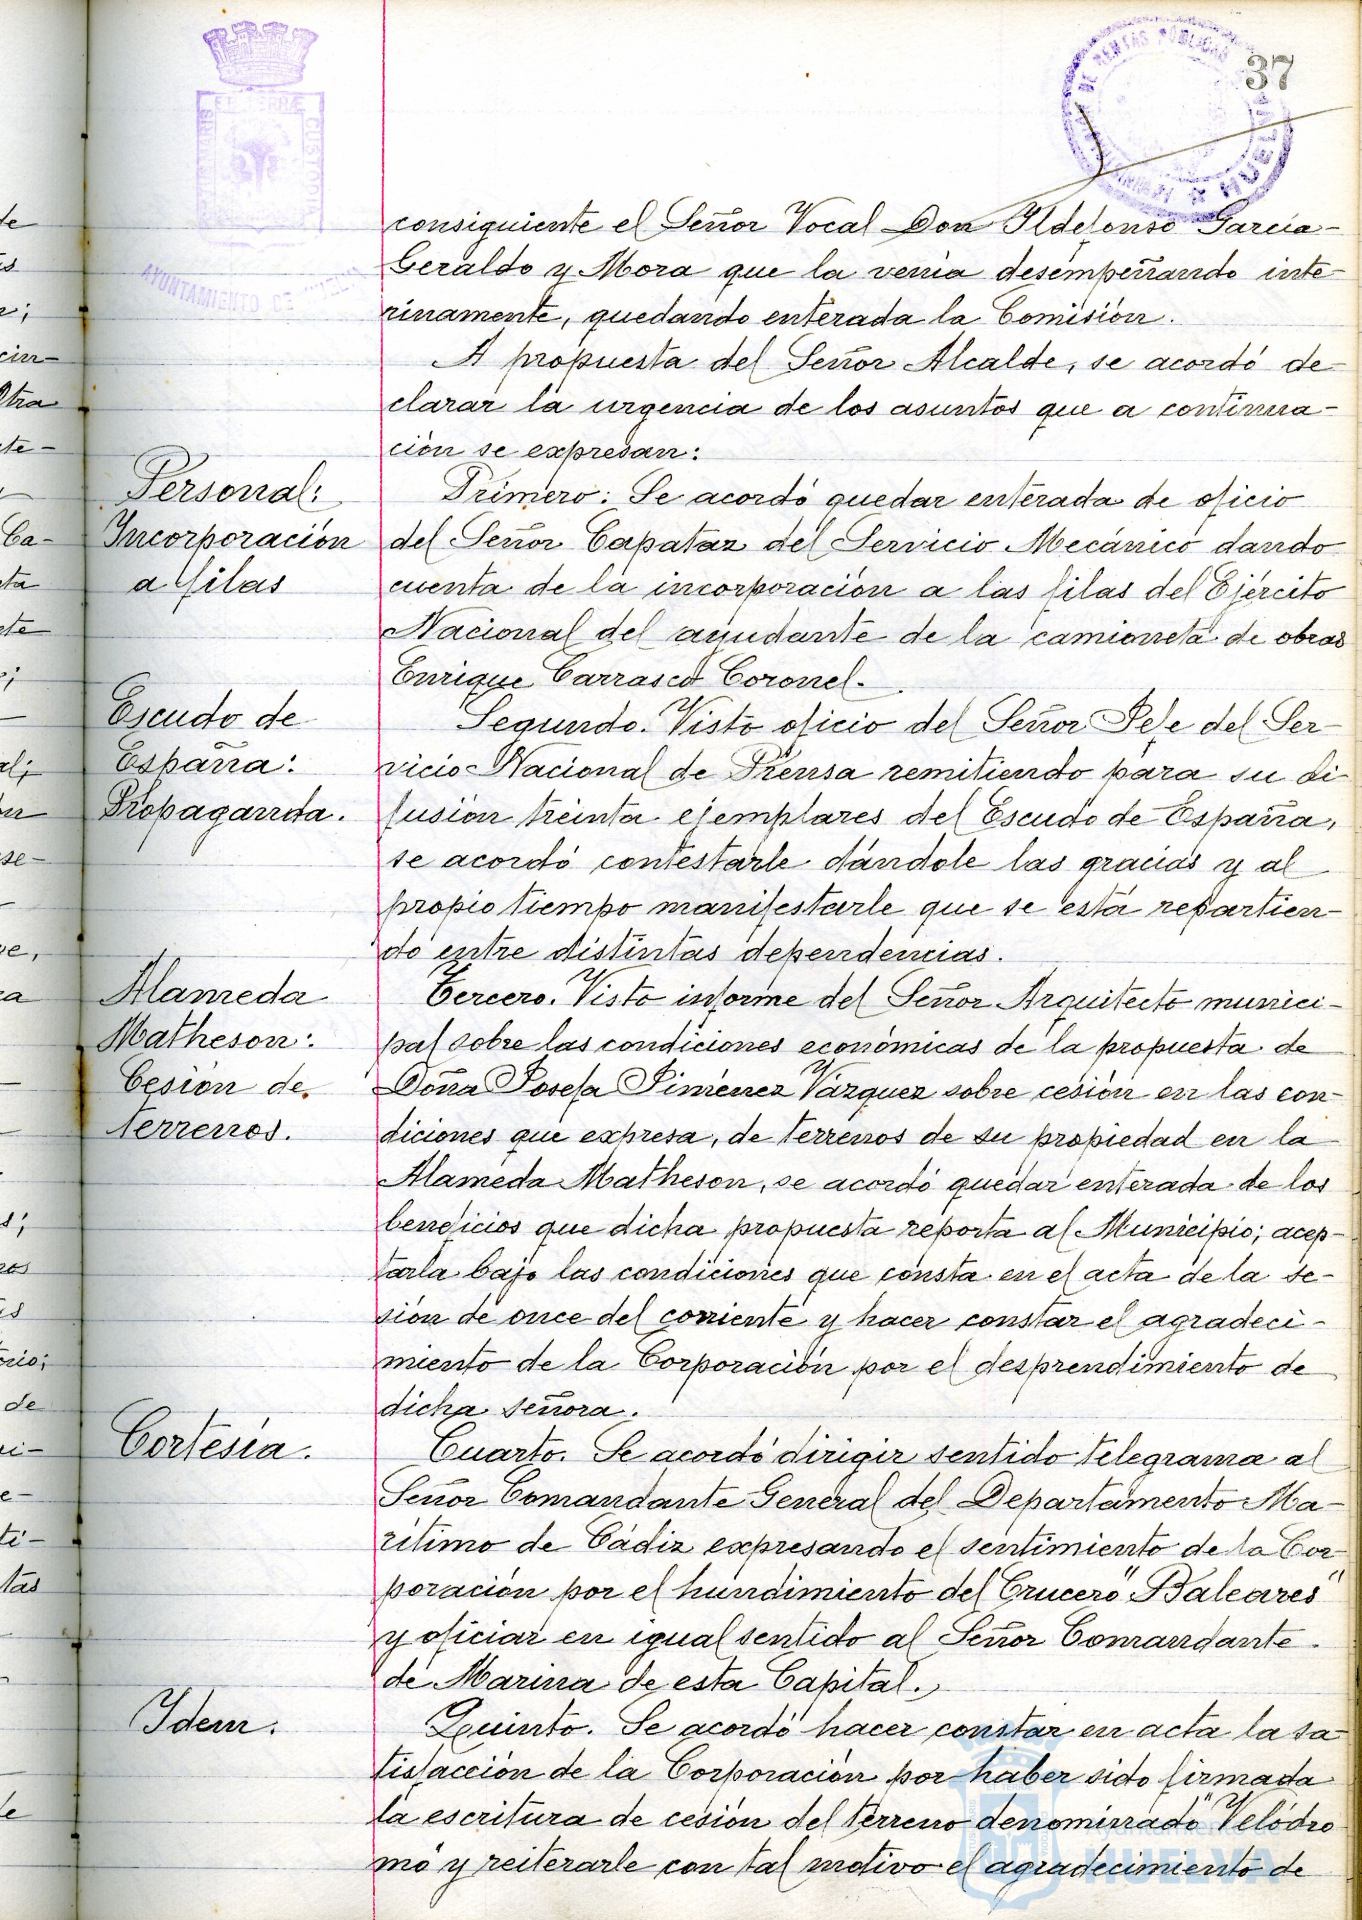 37
PORTUS MARIS ET TERRÆ CUSTODIA
AYUNTAMIENTO DE HUELVA
DE RENTAS PUBLICAS
HUELVA
consiguiente el Señor Vocal Don Ildefonso García-
Geraldo y Mora que la venía desempeñando inte-
rinamente, quedando enterada la Comisión.
A propuesta del Señor Alcalde, se acordó de
clarar la urgencia de los asuntos que a continua-
ción se expresan:
Personal:
Incorporación
a filas
Primero: Se acordó quedar enterada de oficio
del Señor Capataz del Servicio Mecánico dando
cuenta de la incorporación a las filas del Ejército
Nacional del ayudante de la camioneta de obras
Enrique Carrasco Coronel.
Escudo de
España:
Propaganda.
Segundo. Visto oficio del Señor Jefe del Ser-
vicio Nacional de Prensa remitiendo para su di
fusión treinta ejemplares del Escudo de España,
se acordó contestarle dándole las gracias y al
propio tiempo manifestarle que se está repartien-
do entre distintas dependencias.
Alameda
Matheson:
Cesión de
terrenos.
Tercero. Visto informe del Señor Arquitecto munici-
pal sobre las condiciones económicas de la propuesta de
Doña Josefa Jiménez Vázquez sobre cesión en las con-
diciones que expresa, de terrenos de su propiedad en la
Alameda Matheson, se acordó quedar enterada de los
beneficios que dicha propuesta reporta al Municipio; acep-
tarla bajo las condiciones que consta en el acta de la se-
sión de once del corriente y hacer constar el agradeci-
miento de la Corporación por el desprendimiento de
dicha señora.
Cortesía.
Cuarto. Se acordó dirigir sentido telegrama al
Señor Comandante General del Departamento Ma-
rítimo de Cádiz expresando el sentimiento de la Cor-
poración por el hundimiento del Crucero "Baleares"
y oficiar en igual sentido al Señor Comandante
de Marina de esta Capital.
Idem.
Quinto. Se acordó hacer constar en acta la sa-
tisfacción de la Corporación por haber sido firmada
la escritura de cesión del terreno denominado "Velódro
mo y reiterarle con tal motivo el agradecimiento de
Ayuntamiento de
HUELVA